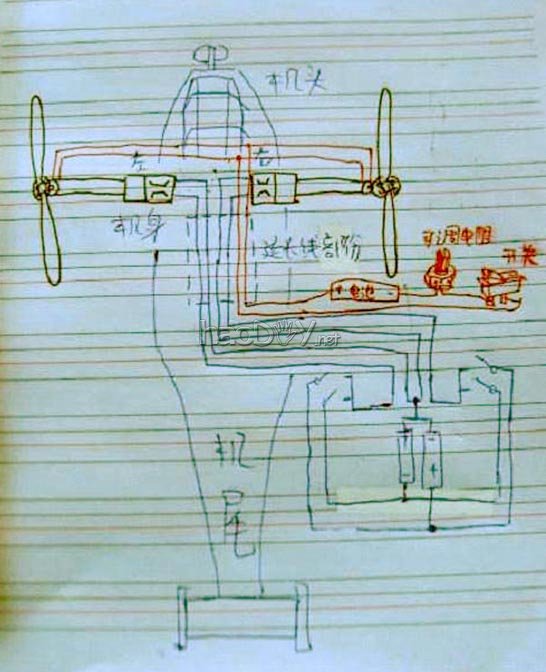 机头
左
右
机身
延长线部份
可调电阻
开关
+ 电池 -
haoDIY.net
机
尾